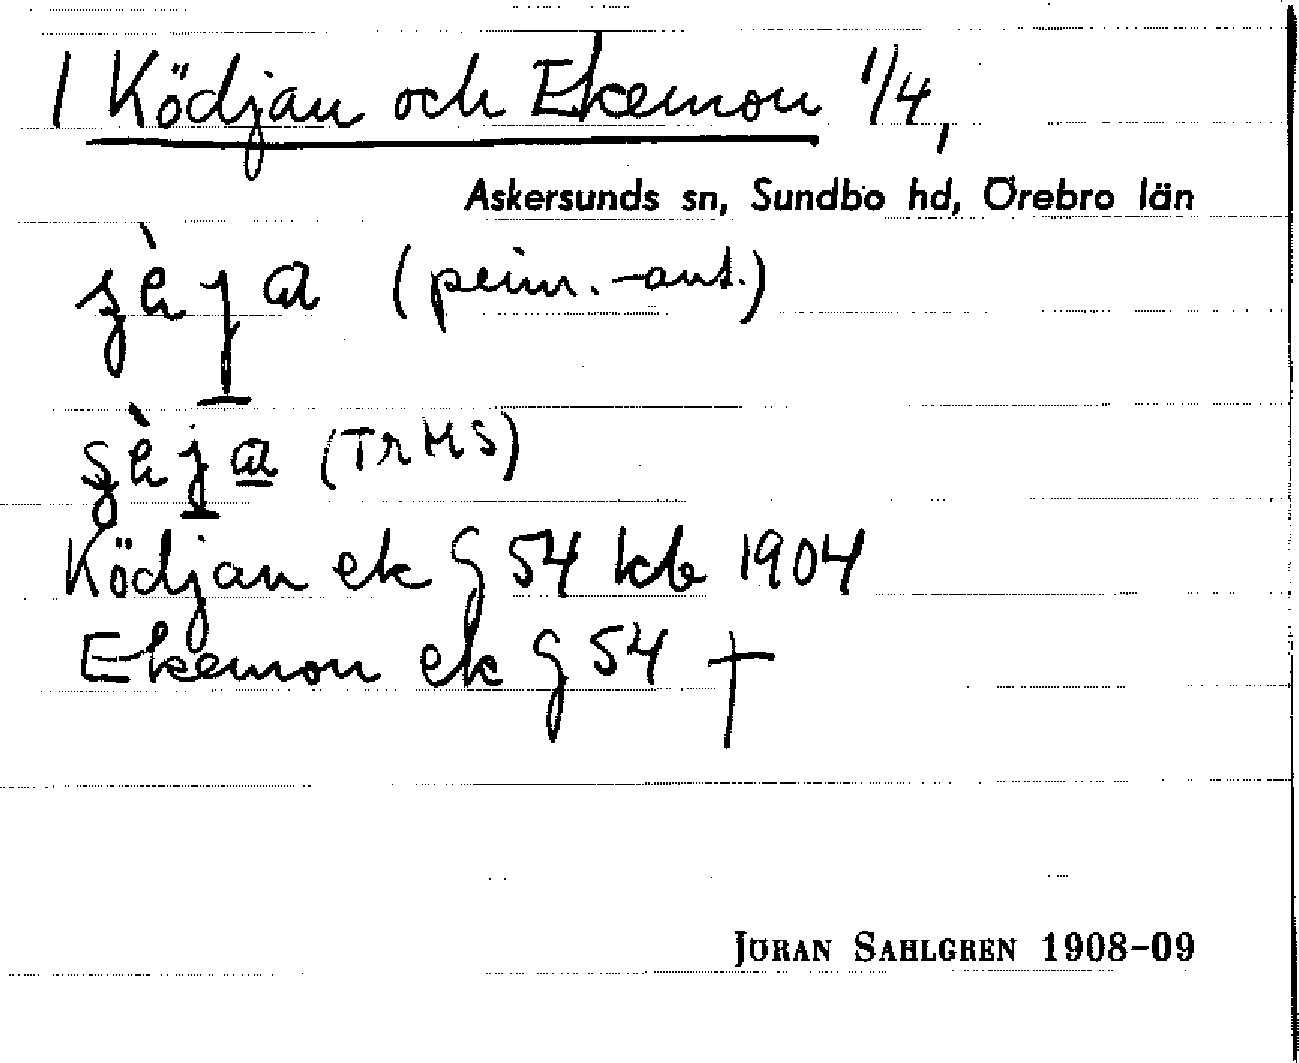 1 Ködjan och Ekemon 1/4,
Askersunds sn, Sundbo hd, Örebro län
(prim.-ant.)
(TrHS)
Ködjan ek g 54 kb 1904
Ekemon ek g 54 †
JÖRAN SAHLGREN 1908-09